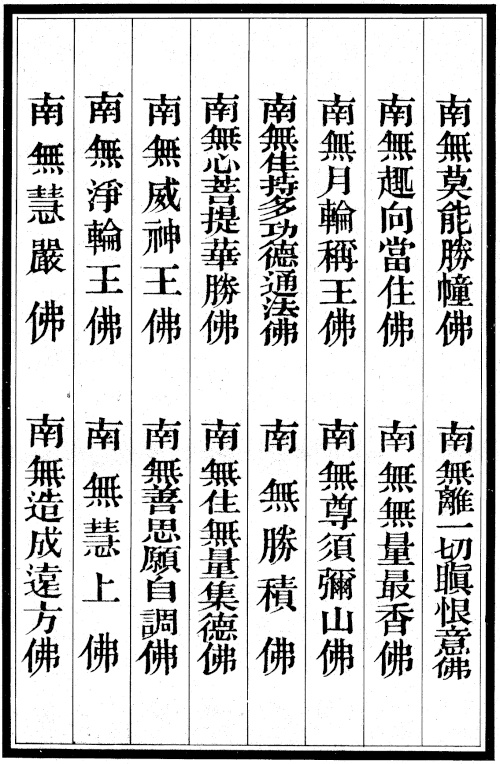 南無莫能勝幢佛
南無離一切瞋恨意佛
南無趣向當住佛
南無無量最香佛
南無月輪稱王佛
南無尊須彌山佛
南無住持多功德通法佛
南無勝積佛
南無心菩提華勝佛
南無住無量集德佛
南無威神王佛
南無善思願自調佛
南無淨輪王佛
南無慧上佛
南無慧嚴佛
南無造成遠方佛